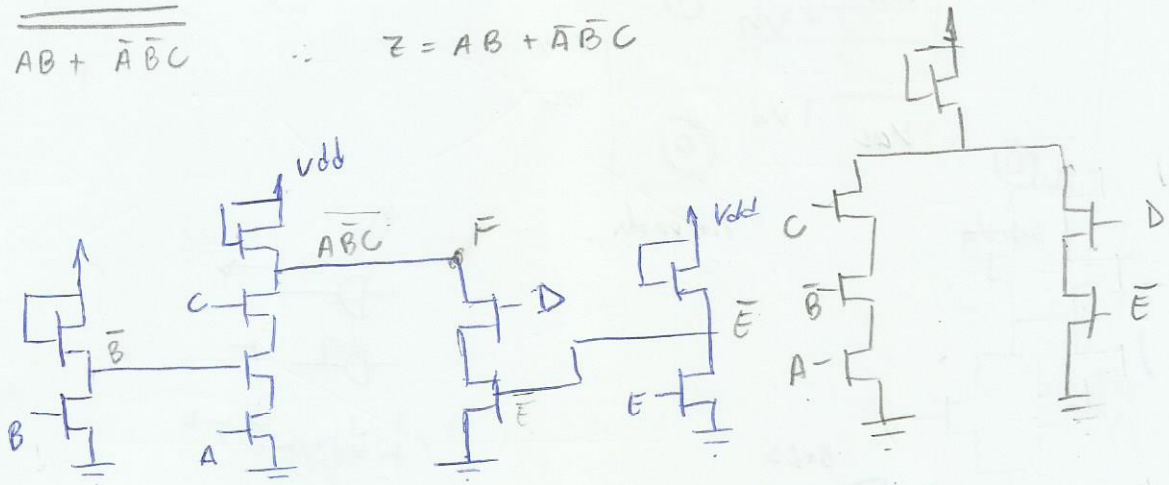 AB + A̅B̅C ∴ Z = AB + A̅B̅C
Vdd
A̅B̅C̅
F
C
B̅
D
B
A
E̅
Vdd
E̅
E
C
B̅
A
D
E̅